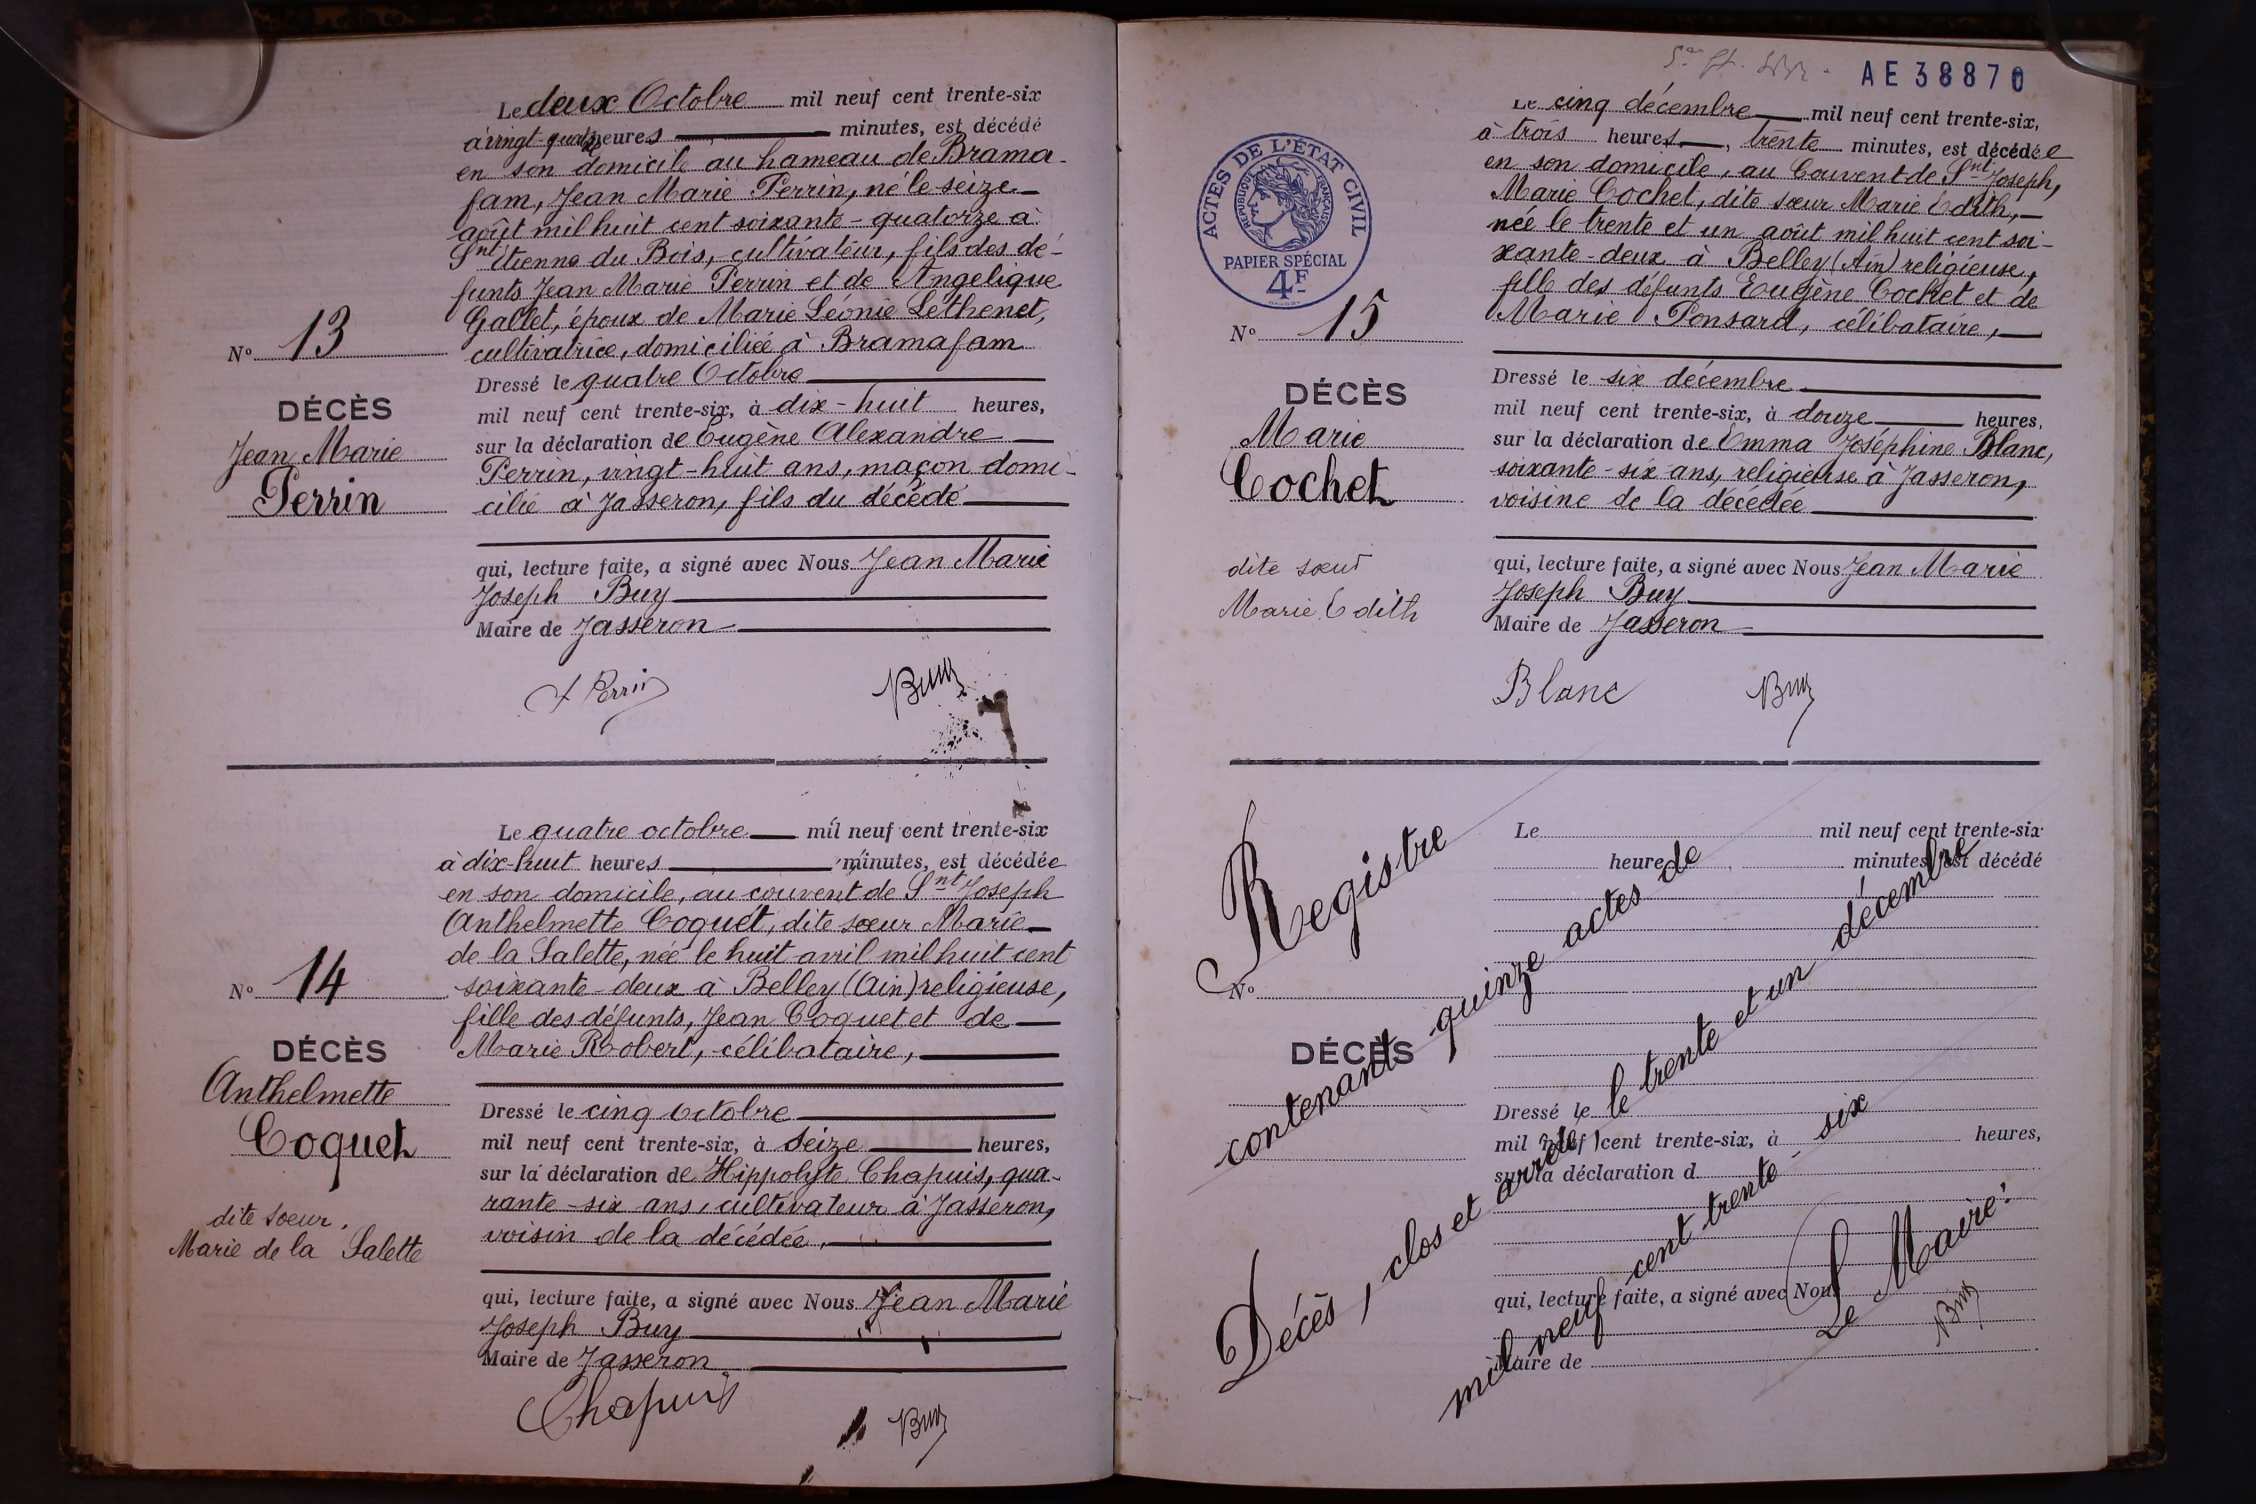 Le deux Octobre mil neuf cent trente-six
à vingt-quatre heures minutes, est décédé
en son domicile au hameau de Brama-
fam, Jean Marie Perrin, né le seize
août mil huit cent soixante-quatorze à
Snt Etienne du Bois, cultivateur, fils des dé-
funts Jean Marie Perrin et de Angelique
Gallet, époux de Marie Léonie Lethenet,
cultivatrice, domiciliée à Bramafam
Nº 13
DÉCÈS
Jean Marie
Perrin
Dressé le quatre Octobre
mil neuf cent trente-six, à dix-huit heures,
sur la déclaration de Eugène Alexandre
Perrin, vingt-huit ans, maçon domi-
cilié à Jasseron, fils du décédé
qui, lecture faite, a signé avec Nous Jean Marie
Joseph Buy
Maire de Jasseron
Perrin Buy
Le quatre octobre mil neuf cent trente-six
à dix-huit heures minutes, est décédée
en son domicile, au couvent de Snt Joseph
Anthelmette Coquet, dite sœur Marie
de la Salette, née le huit avril mil huit cent
soixante-deux à Belley (Ain) religieuse,
fille des défunts, Jean Coquet et de
Marie Robert, célibataire,
Nº 14
DÉCÈS
Anthelmette
Coquet
dite soeur
Marie de la Salette
Dressé le cinq octobre
mil neuf cent trente-six, à seize heures,
sur la déclaration de Hippolyte Chapuis, qua-
rante-six ans, cultivateur à Jasseron,
voisin de la décédée,
qui, lecture faite, a signé avec Nous Jean Marie
Joseph Buy
Maire de Jasseron
Chapuis Buy
AE38870
ACTES DE L'ÉTAT CIVIL
RÉPUBLIQUE FRANÇAISE
PAPIER SPÉCIAL
4F
Le cinq décembre mil neuf cent trente-six,
à trois heures, trente minutes, est décédée
en son domicile, au Couvent de Snt Joseph,
Marie Cochet, dite sœur Marie Edith,
née le trente et un août mil huit cent soi-
xante-deux à Belley (Ain) religieuse,
fille des défunts Eugène Cochet et de
Marie Ponsard, célibataire,
Nº 15
DÉCÈS
Marie
Cochet
dite sœur
Marie Edith
Dressé le six décembre
mil neuf cent trente-six, à douze heures,
sur la déclaration de Emma Joséphine Blanc,
soixante-six ans, religieuse à Jasseron,
voisine de la décédée
qui, lecture faite, a signé avec Nous Jean Marie
Joseph Buy
Maire de Jasseron
Blanc Buy
Le mil neuf cent trente-six
heure minutes, est décédé
Nº
DÉCÈS
Dressé le
mil neuf cent trente-six, à heures,
sur la déclaration d
qui, lecture faite, a signé avec Nous
Maire de
Registre
contenant quinze actes de
Décès, clos et arrêté, le trente et un décembre
mil neuf cent trente-six
Le Maire:
Buy